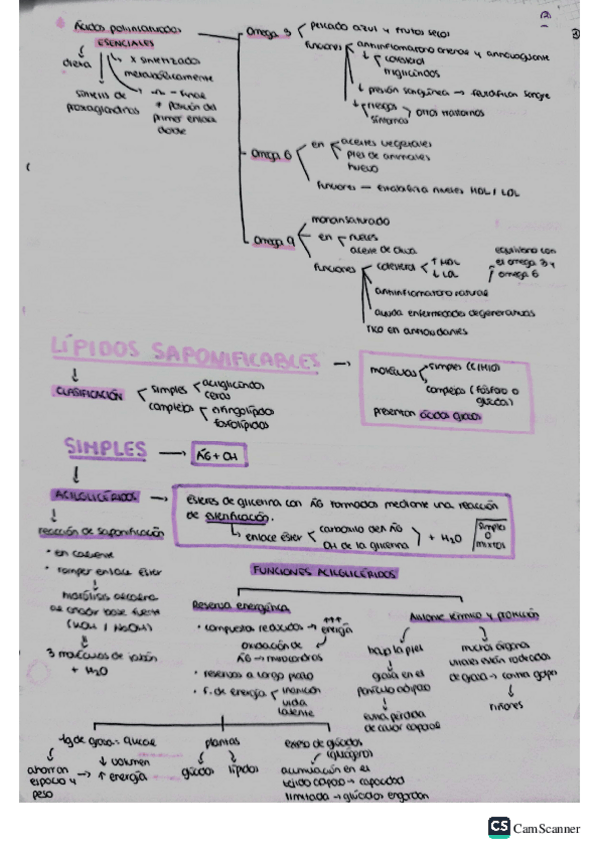 Ácidos poliinsaturados
ESENCIALES
dieta
x sintetizados
metabólicamente
síntesis de
prostaglandinas
posición del
primer enlace
doble
Omega 3
pescado azul y frutos secos
funciones
colesterol
triglicéridos
↓ presión sanguínea →
↓ riesgos
síntomas
otros trastornos
Omega 6
en
aceites vegetales
piel de animales
huevo
funciones — estabiliza niveles HDL / LDL
Omega 9
monoinsaturado
en
aceite de oliva
funciones
colesterol
↑ HDL
↓ LDL
equilibrio con
el omega 3 y
omega 6
antiinflamatorio natural
enfermedades degenerativas
rico en antioxidantes
LÍPIDOS SAPONIFICABLES →
moléculas
simples (C/H/O)
complejos (fósforo o
presentan ácidos grasos
CLASIFICACIÓN
simples
acilglicéridos
ceras
complejos
esfingolípidos
fosfolípidos
SIMPLES → ÁG + OH
ACILGLICÉRIDOS →
ésteres de glicerina con ÁG formados mediante una reacción
de esterificación.
enlace éster
carbonilo del ÁG
OH de la glicerina
+ H2O
simples
o
mixtos
reacción de saponificación
• en caliente
• romper enlace éster
hidrólisis alcalina
al añadir base fuerte
(KOH / NaOH)
3 moléculas de jabón
+ H2O
FUNCIONES ACILGLICÉRIDOS
Reserva energética
• compuestos reducidos → +++
energía
oxidación de
ÁG → mitocondrias
• reservas a largo plazo
• f. de energía
inanición
vida
latente
Aislante térmico y protección
bajo la piel
grasa en el
panículo adiposo
evita pérdida
de calor corporal
muchos órganos
vitales están rodeados
de grasa → contra golpes
riñones
1g de grasa =
↓ volumen
↑ energía
ahorran
espacio y
peso
plantas
glúcidos
lípidos
exceso de glúcidos
(glucógeno)
acumulación en el
tejido adiposo → capacidad
limitada → glúcidos engordan
CS CamScanner